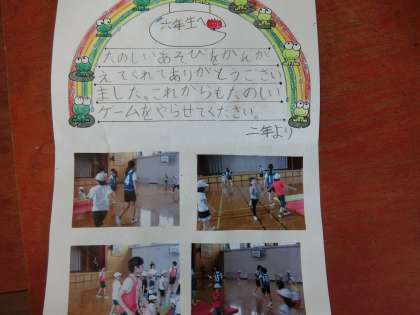 六年生へ
たのしいあそびをかんが
えてくれてありがとうござい
ました。これからもたのしい
ゲームをやらせてください。
二年より